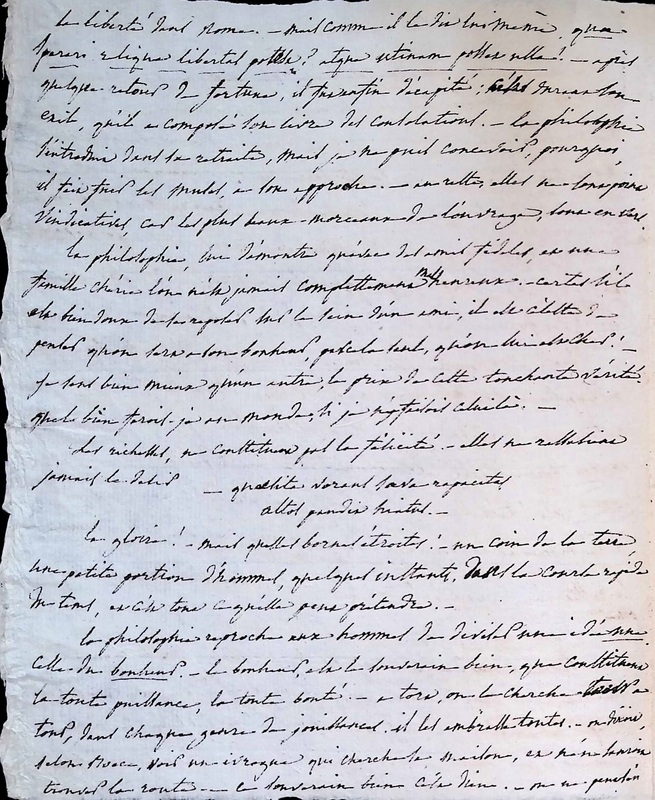 la liberté dans Rome. – mais comme il le dit lui même, quae
sperari reliqua libertas potest? atque utinam posset ulla! – après
quelque retour de fortune, il fut enfin décapité; c'est durant son
exil, qu'il a composé son livre des consolations. – la philosophie
s'introduit dans sa retraite, mais je ne puis concevoir, pourquoi,
il fait fuir les muses à son approche. – au reste, elles ne sont point
vindicatives, car les plus beaux morceaux de l'ouvrage, sont en vers.
la philosophie, lui démontre qu'avec des amis fidèles, et une
famille chérie l'on n'est jamais complettement malheureux. – certes s'il
est bien doux de se reposer sur le sein d'un ami, il l'est de
penser qu'on sera à son bonheur, par cela seul, qu'on lui est cher! –
je sens bien mieux qu'un autre, le prix de cette touchante vérité.
que bien ferois-je au monde, si je n'y faisois celui là. –
les richesses, ne constituent pas la félicité. – elles ne rassasient
jamais le désir – quaesita vorans saeva rapacitas
altos pandit hiatus. –
la gloire! – mais quelles bornes étroites! – un coin de la terre
une petite portion d'hommes, quelques instants, dans la course rapide
du tems, et c'est tout ce qu'elle peut prétendre. –
la philosophie reproche aux hommes de diviser une idée une
celle du bonheur. – le bonheur, est le souverain bien, que constituent
la toute puissance, la toute bonté. – à tort, on le cherche
tous, dans chaque genre de jouissances. il les embrasse toutes. – on diroit,
selon Boece, voir un ivrogne qui cherche sa maison, et n'en sauroit
trouver la route. – ce souverain bien c'est Dieu. – on ne pensoit